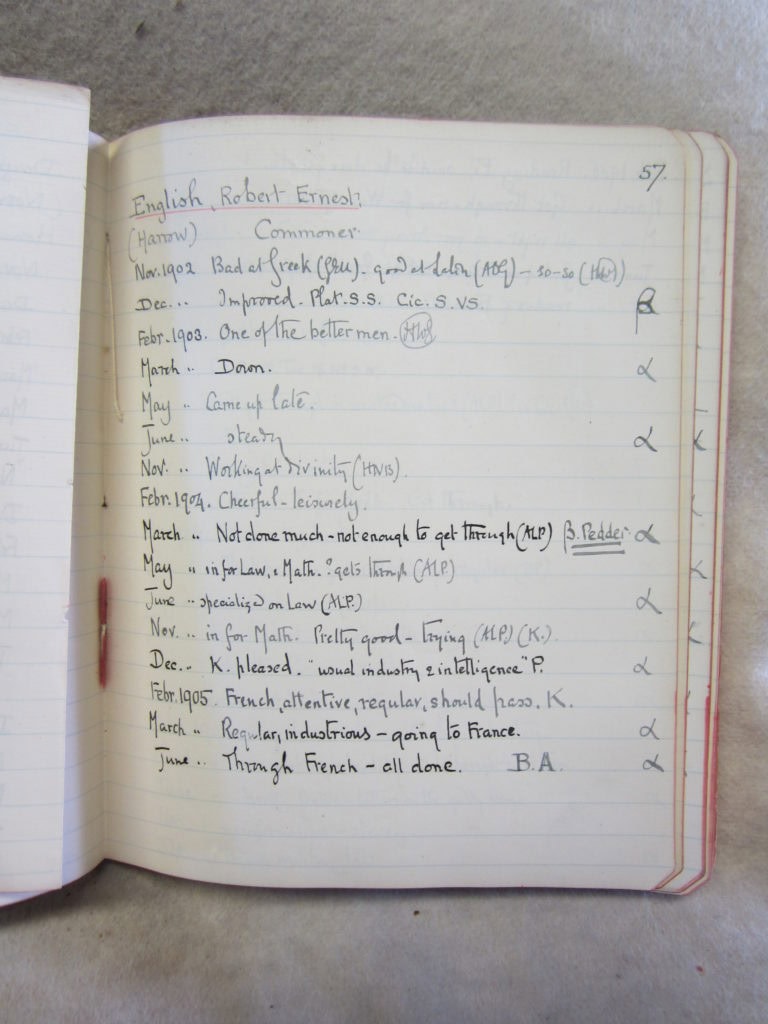 57.
English, Robert Ernest.
(Harrow) Commoner.
Nov. 1902 Bad at Greek (GEU). good at Latin (ADG) - so-so
Dec. .. Improved. Plat. S.S. Cic. S. VS. β
Febr. 1903. One of the better men.
March .. Down. α
May .. Came up late.
June .. steady α
Nov. .. Working at divinity (HNB).
Febr. 1904. Cheerful - leisurely.
March .. Not done much - not enough to get through (ALP) β. Pedder α
May .. in for Law, & Math. ? gets through (ALP)
June .. specialized on Law (ALP.) α
Nov. .. in for Math. Pretty good - trying (ALP) (K.).
Dec. .. K. pleased. "usual industry & intelligence" P. α
Febr. 1905. French, attentive, regular, should pass. K.
March .. Regular, industrious - going to France. α
June .. Through French - all done. B.A. α